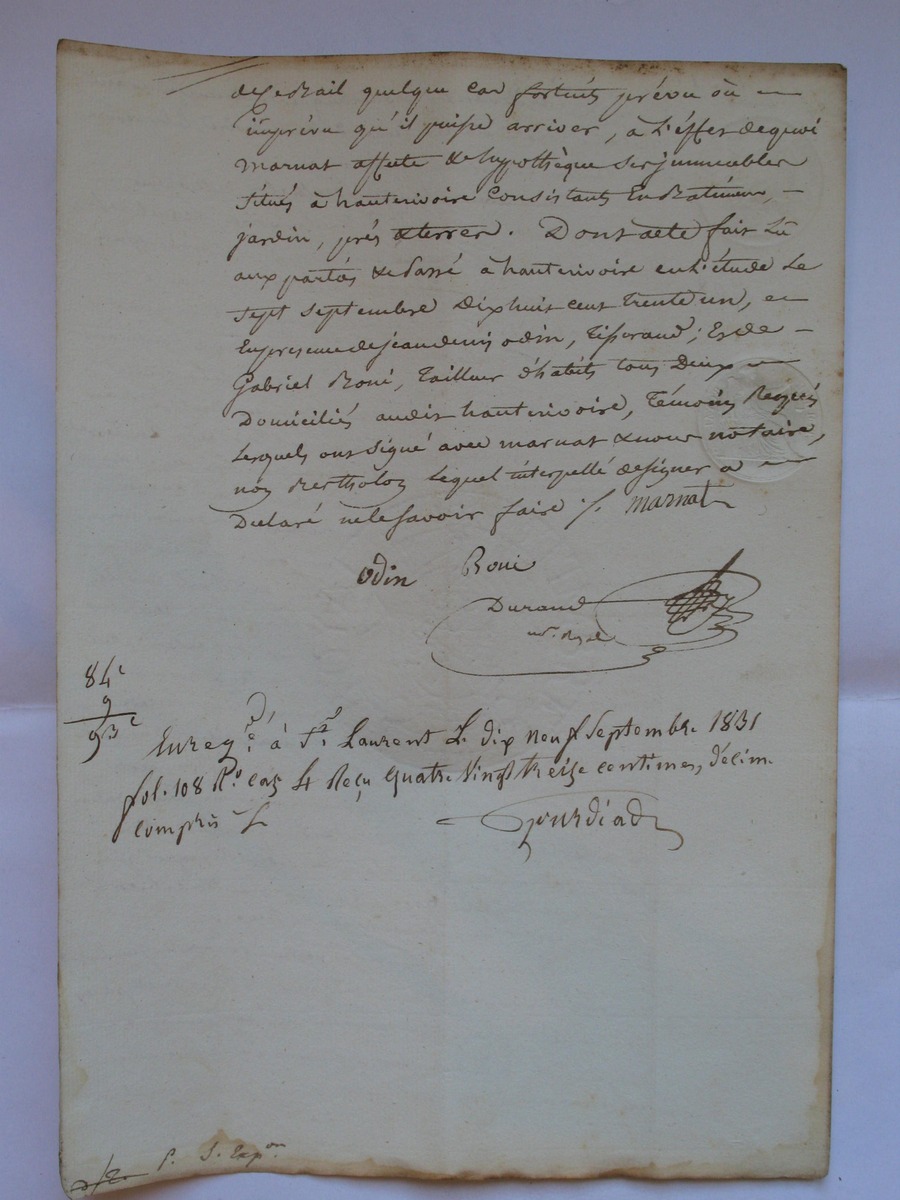 de ce Bail quelque cas fortuits prévu où
imprévu qu'il puisse arriver, à L'éffet de quoi
Marnat affecte & hypothèque ses jmmeubles
situés à hauterivoire Consistants En Batiment,
jardin, prés & terres. Dont acte fait Lu
aux parties & Passé à hauterivoire en L'étude Le
sept septembre Dix huit cent trente un, 
En presence de jean denis odin, Tisserand; Et de
Gabriel Roni, Tailleur d'habits tous Deux
Domiciliés audit hauterivoire, Témoins Requis
Lesquels ont signé avec marnat & nous notaire,
non Bertholon Lequel interpellé de signer a
Déclaré ne le savoir faire /. Marnat
odin Roni
Durand
nre. Royal
84c
9
93c
Enregré à St. Laurent Le dix neuf Septembre 1831
fol. 108 Ro. Cas 4 Reçu quatre Vingt treize centimes, décim.
compris
P. S. Expon